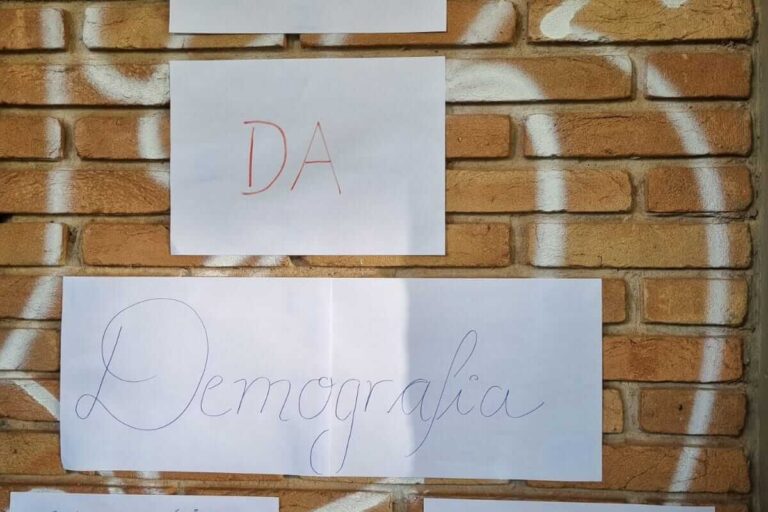 DA
Demografia